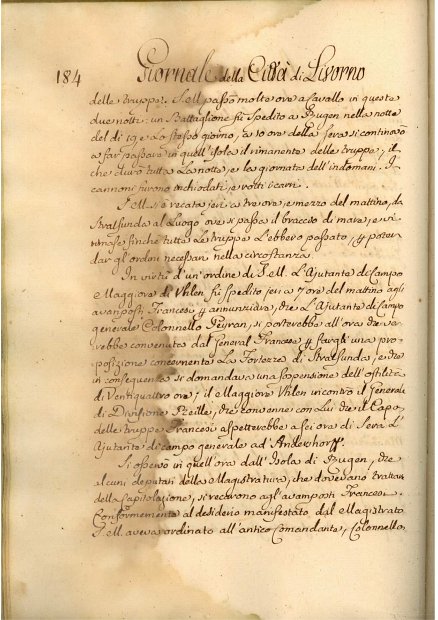 184 Giornale della Città di Livorno
delle truppe. S. M. passò molte ore a Cavallo in queste
due notti: un Battaglione fù Spedito a Rugen nella notte
del di 19 e Lo stesso giorno, a 10 ore della sera si continovò
a far passare in quell'Isola il rimanente delle truppe, il
che durò tutta La notte, e la giornata dell'indomani. I
cannoni furono inchiodati, e rotti i carri.
S. M. si è recata jeri a tre ore, e mezzo del mattino, da
Stralsunda al Luogo ove si passa il braccio di mare, e vi
rimase finche tutte Le truppe L'ebbero passato, p poter
dar gl'ordini necessari nella circostanza.
In virtù d'un'ordine di S. M. L'Ajutante di Campo
e Maggiore di Uhlen fù Spedito jeri a 7 ore del mattino agli
avanposti Francesi p annunziare, che L'Ajutante di Campo
generale Colonnello Peyran, si porterebbe all'ora che ver-
rebbe convenuta dal General Francese p fargli una pro-
posizione concernente La Fortezza di Stralsunda, e che
in conseguenza si domandava una sospensione dell'ostilità
di Ventiquattro ore; il Maggiore Uhlen incontrò il Generale
di Divisione Reille, che convenne con Lui che il Capo
delle truppe Francesi aspetterebbe a sei ore di Sera L'
Ajutante di campo generale ad'Andershoff.
Si osservò in quell'ora dall'Isola di Rugen, che
alcuni deputati della Magistratura, che dovevano trattare
della Capitolazione, si recarono agl'avamposti Francesi.
Conformemente al desiderio manifestato dal Magistrato
S. M. aveva ordinato all'antico Comandante, Colonnello